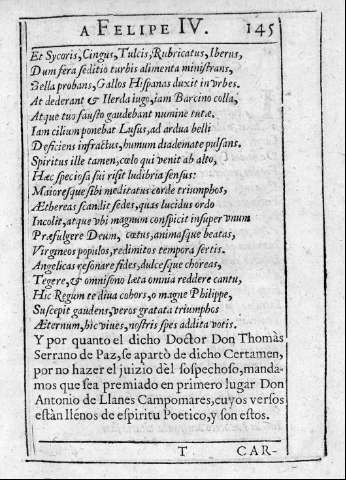 A FELIPE IV. 145
Et Sycoris, Cingus, Tulcis, Rubricatus, Iberus,
Dum fera seditio turbis alimenta ministrans,
Bella probans, Gallos Hispanas duxit in vrbes.
At dederant & Ilerda iugo, iam Barcino colla,
Atque tuo fausto gaudebant numine tutæ.
Iam cilium ponebat Lusus, ad ardua belli
Deficiens infractus, humum diademate pulsans.
Spiritus ille tamen, cœlo qui venit ab alto,
Hæc speciosa sui risit ludibria sensus:
Maioresque sibi meditatus corde triumphos,
Æthereas scandit sedes, quas lucidus ordo
Incolit, atque vbi magnum conspicit insuper vnum
Præfulgere Deum, cœtus, animasque beatas,
Virgineos populos, redimitos tempora sertis.
Angelicas resonare fides, dulcesque choreas,
Tegere, & omnisono læta omnia reddere cantu,
Hic Regum te diua cohors, o magne Philippe,
Suscepit gaudens, veros gratata triumphos
Æternum, hic viues, nostris spes addita votis.
Y por quanto el dicho Doctor Don Thomàs
Serrano de Paz, se apartò de dicho Certamen,
por no hazer el juizio del sospechoso, manda-
mos que sea premiado en primero lugar Don
Antonio de Llanes Campomares, cuyos versos
estàn llenos de espiritu Poetico, y son estos.
T CAR-